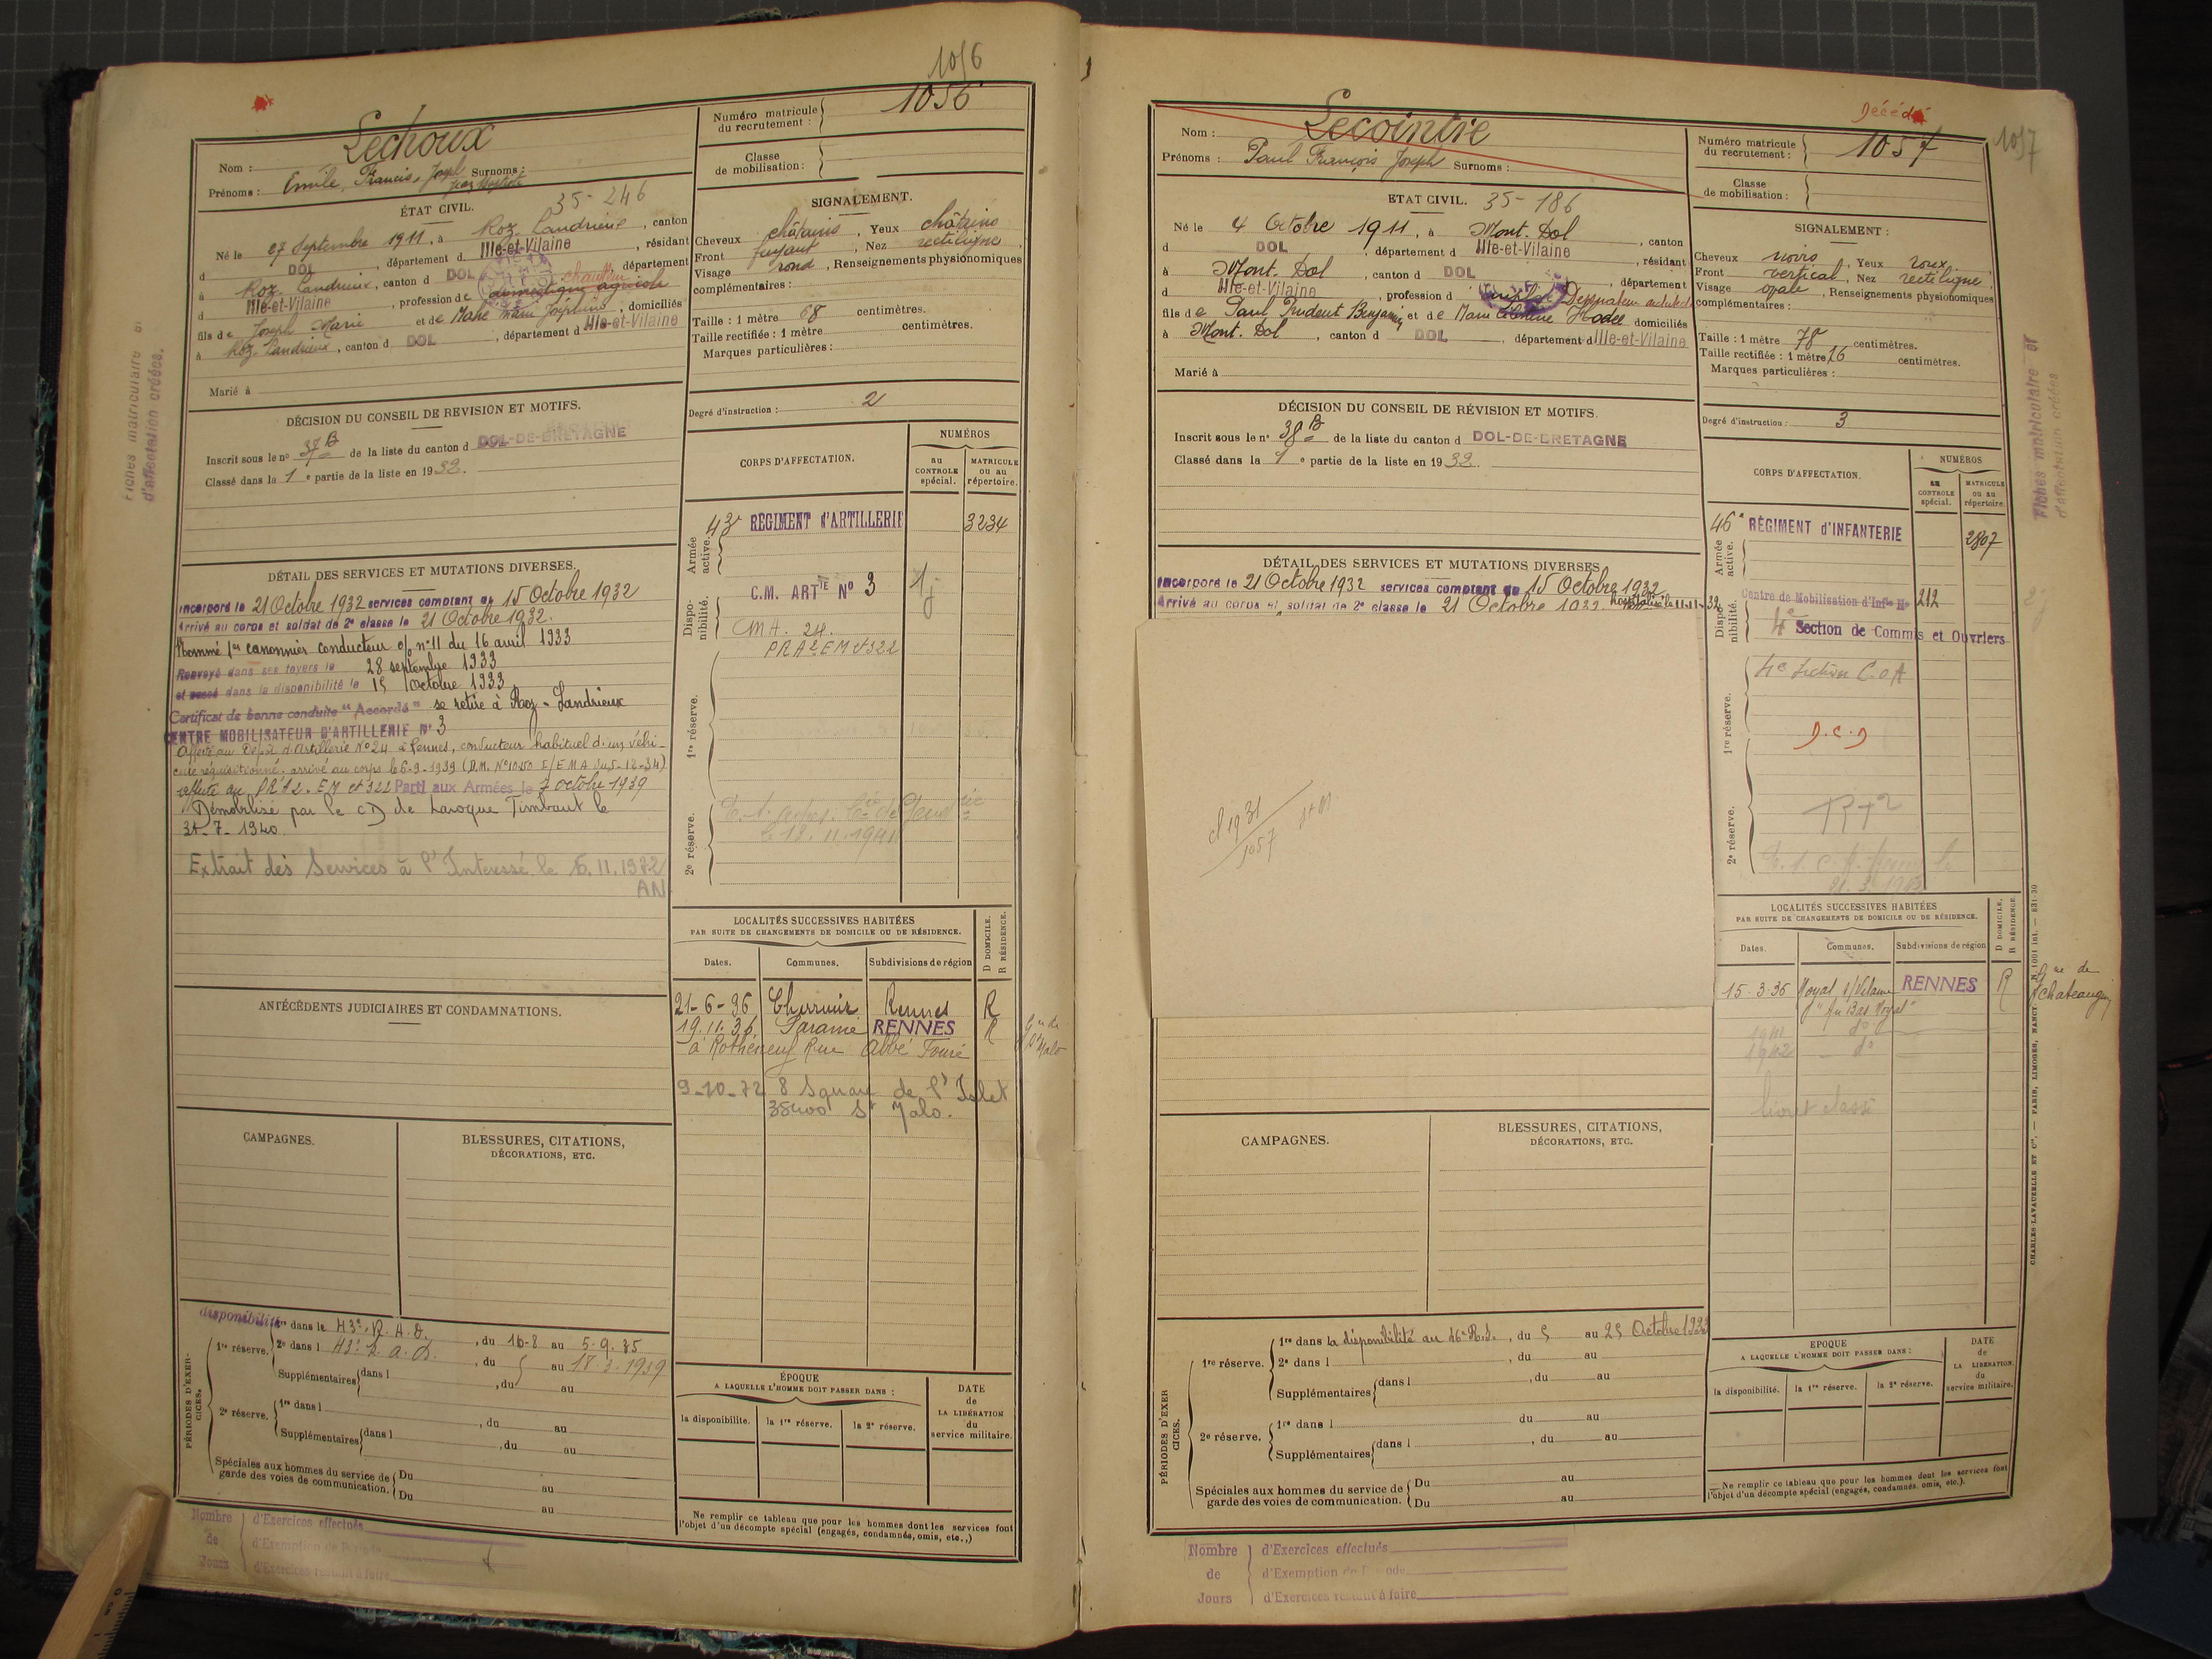 1056
Lechoux
Nom :
Prénoms : Emile, Francis, Joseph Surnoms :
Jean Baptiste
Numéro matricule du recrutement : 1056
Classe de mobilisation :
ÉTAT CIVIL. 35-246
Né le 27 Septembre 1911, à Roz-Landrieux, canton
d DOL, département d Ille-et-Vilaine, résidant
à Roz-Landrieux, canton d DOL, département
d Ille-et-Vilaine, profession de domestique agricole
fils de Joseph Marie et de Mahé Marie Joséphine, domiciliés
à Roz-Landrieux, canton d DOL, département d Ille-et-Vilaine
Marié à
SIGNALEMENT.
Cheveux châtains, Yeux châtains
Front fuyant, Nez rectiligne,
Visage rond, Renseignements physionomiques
complémentaires :
Taille : 1 mètre 68 centimètres.
Taille rectifiée : 1 mètre centimètres.
Marques particulières :
Degré d'instruction : 2
DÉCISION DU CONSEIL DE REVISION ET MOTIFS.
Inscrit sous le no 37 B de la liste du canton d DOL-DE-BRETAGNE
Classé dans la 1 e partie de la liste en 1932.
CORPS D'AFFECTATION.
NUMÉROS
au CONTROLE spécial.
MATRICULE ou au répertoire.
Armée active.
43e REGIMENT d'ARTILLERIE 3234
Disponibilité.
C.M. ARTIE No 3
CMA. 24.
PRA2 EM et 322
1re réserve.
2e réserve.
12.11.1941
DÉTAIL DES SERVICES ET MUTATIONS DIVERSES.
Incorporé le 21 Octobre 1932 services comptant du 15 Octobre 1932
Arrivé au corps et soldat de 2e classe le 21 Octobre 1932.
Nommé 1er canonnier conducteur o/ no 11 du 16 avril 1933
Renvoyé dans ses foyers le 28 septembre 1933
et passé dans la disponibilité le 15 Octobre 1933
Certificat de bonne conduite "Accordé" se retire à Roz-Landrieux
CENTRE MOBILISATEUR D'ARTILLERIE No 3
Affecté au Dépôt d'Artillerie No 24 à Rennes, conducteur habituel d'un véhi-
cule réquisitionné. arrivé au corps le 6-9-1939
affecté au PRA2. EM et 322 Parti aux Armées le 7 octobre 1939
Démobilisé par le CD de Laroque Timbaut le
31-7-1940
Extrait des Services à l'Interessé le 6.11.1972
AN
LOCALITÉS SUCCESSIVES HABITÉES
PAR SUITE DE CHANGEMENTS DE DOMICILE OU DE RÉSIDENCE.
Dates. Communes. Subdivisions de région
D DOMICILE. R RÉSIDENCE.
21-6-36 Cherrueix Rennes R
19.11.36 Paramé RENNES R
à Rothéneuf Rue Abbé Fouré
9-10-72 8 Square de l'Islet
35400 St Malo.
ANTÉCÉDENTS JUDICIAIRES ET CONDAMNATIONS.
CAMPAGNES.
BLESSURES, CITATIONS, DÉCORATIONS, ETC.
PÉRIODES D'EXERCICES.
disponibilité
1re réserve. 1re dans le 43e. R.A.D., du 16-8 au 5-9.35
2e dans l 43e R.A.D., du 5 au 17-3-1939
Supplémentaires dans l , du au
2e réserve. 1re dans l , du au
Supplémentaires dans l , du au
Spéciales aux hommes du service de garde des voies de communication. Du au
Du au
ÉPOQUE
A LAQUELLE L'HOMME DOIT PASSER DANS :
la disponibilité. la 1re réserve. la 2e réserve.
DATE de LA LIBÉRATION du service militaire.
Ne remplir ce tableau que pour les hommes dont les services font
l'objet d'un décompte spécial (engagés, condamnés, omis, etc..)
Nombre de Jours
d'Exercices effectués
d'Exemption de Période
d'Exercices restant à faire
Fiches matriculaire et
d'affectation créées.
Décédé
1057
Nom : Lecointre
Prénoms : Paul François Joseph Surnoms :
Numéro matricule du recrutement : 1057
Classe de mobilisation :
ETAT CIVIL. 35-186
Né le 4 Octobre 1911, à Mont-Dol, canton
d DOL, département d Ille-et-Vilaine, résidant
à Mont-Dol, canton d DOL, département
d Ille-et-Vilaine, profession d Dessinateur
fils de Paul Prudent Benjamin et de Marie Hodée domiciliés
à Mont-Dol, canton d DOL, département d Ille-et-Vilaine
Marié à
SIGNALEMENT :
Cheveux noirs, Yeux roux,
Front vertical, Nez rectiligne,
Visage ovale, Renseignements physionomiques
complémentaires :
Taille : 1 mètre 78 centimètres.
Taille rectifiée : 1 mètre 76 centimètres.
Marques particulières :
Degré d'instruction : 3
DÉCISION DU CONSEIL DE RÉVISION ET MOTIFS.
Inscrit sous le no 38 B de la liste du canton d DOL-DE-BRETAGNE
Classé dans la 1 e partie de la liste en 1932.
CORPS D'AFFECTATION.
NUMÉROS
au CONTROLE spécial.
MATRICULE ou au répertoire.
Armée active.
46e RÉGIMENT d'INFANTERIE 2807
Disponibilité.
Centre de Mobilisation d'Infie No 212
4e Section de Commis et Ouvriers
1re réserve.
4e Section C.O.A
D.C.D
2e réserve.
DÉTAIL DES SERVICES ET MUTATIONS DIVERSES
Incorporé le 21 Octobre 1932 services comptant du 15 Octobre 1932
Arrivé au corps et soldat de 2e classe le 21 Octobre 1932.
cl 1931
1057
LOCALITÉS SUCCESSIVES HABITÉES
PAR SUITE DE CHANGEMENTS DE DOMICILE OU DE RÉSIDENCE.
Dates. Communes. Subdivisions de région
D DOMICILE. R RÉSIDENCE.
15-3-36 Noyal s/Vilaine RENNES R
1941 do
1942 do
livret classé
CAMPAGNES.
BLESSURES, CITATIONS, DÉCORATIONS, ETC.
PÉRIODES D'EXERCICES.
1re réserve. 1re dans la disponibilité au 46e R.I., du 5 au 25 Octobre
2e dans l , du au
Supplémentaires dans l , du au
2e réserve. 1re dans l du au
Supplémentaires dans l , du au
Spéciales aux hommes du service de garde des voies de communication. Du au
Du au
EPOQUE
A LAQUELLE L'HOMME DOIT PASSER DANS :
la disponibilité. la 1re réserve. la 2e réserve.
DATE de LA LIBÉRATION du service militaire.
Ne remplir ce tableau que pour les hommes dont les services font
l'objet d'un décompte spécial (engagés, condamnés, omis, etc.).
Nombre de Jours
d'Exercices effectués
d'Exemption
d'Exercices restant à faire
Fiches matriculaire et
d'affectation créées
CHARLES-LAVAUZELLE ET Cie. — PARIS, LIMOGES, NANCY